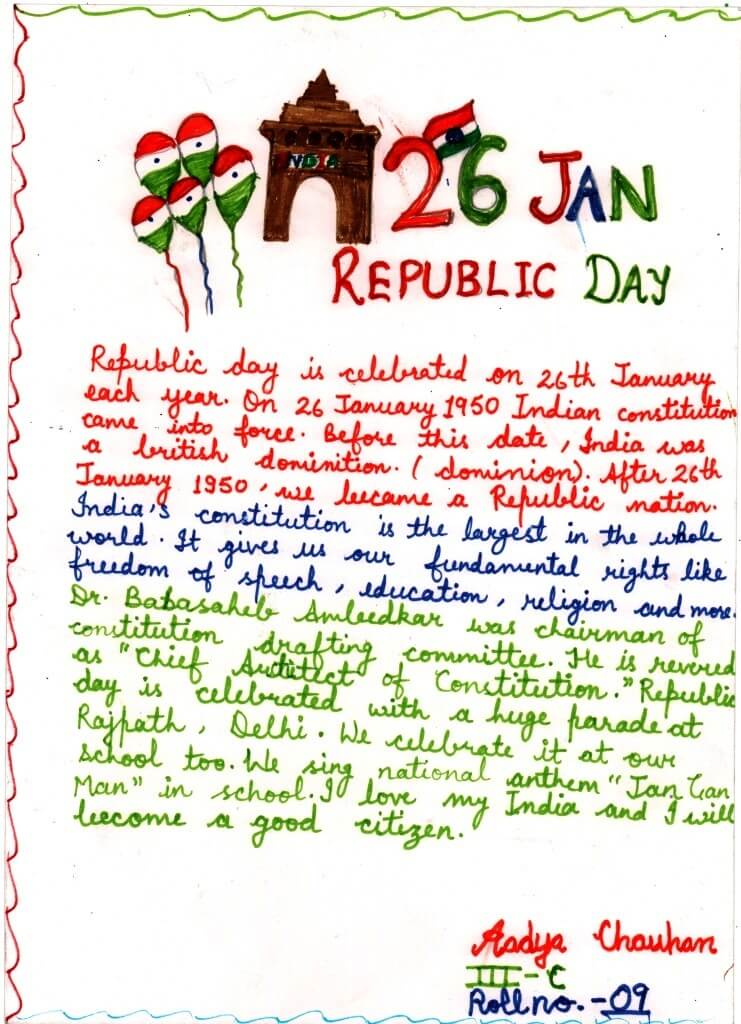 INDIA
26 JAN
REPUBLIC DAY
Republic day is celebrated on 26th January
each year. On 26 January 1950 Indian constitution
came into force. Before this date, India was
a british dominition. (dominion). After 26th
January 1950, we became a Republic nation.
India's constitution is the largest in the whole
world. It gives us our fundamental rights like
freedom of speech, education, religion and more.
Dr. Babasaheb Ambedkar was chairman of
constitution drafting committee. He is revered
as "Chief of Constitution." Republic
day is celebrated with a huge parade at
Rajpath, Delhi. We celebrate it at our
school too. We sing national anthem "Jan Gan
Man" in school. I love my India and I will
become a good citizen.
Aadya Chauhan
III-C
Roll no.-09